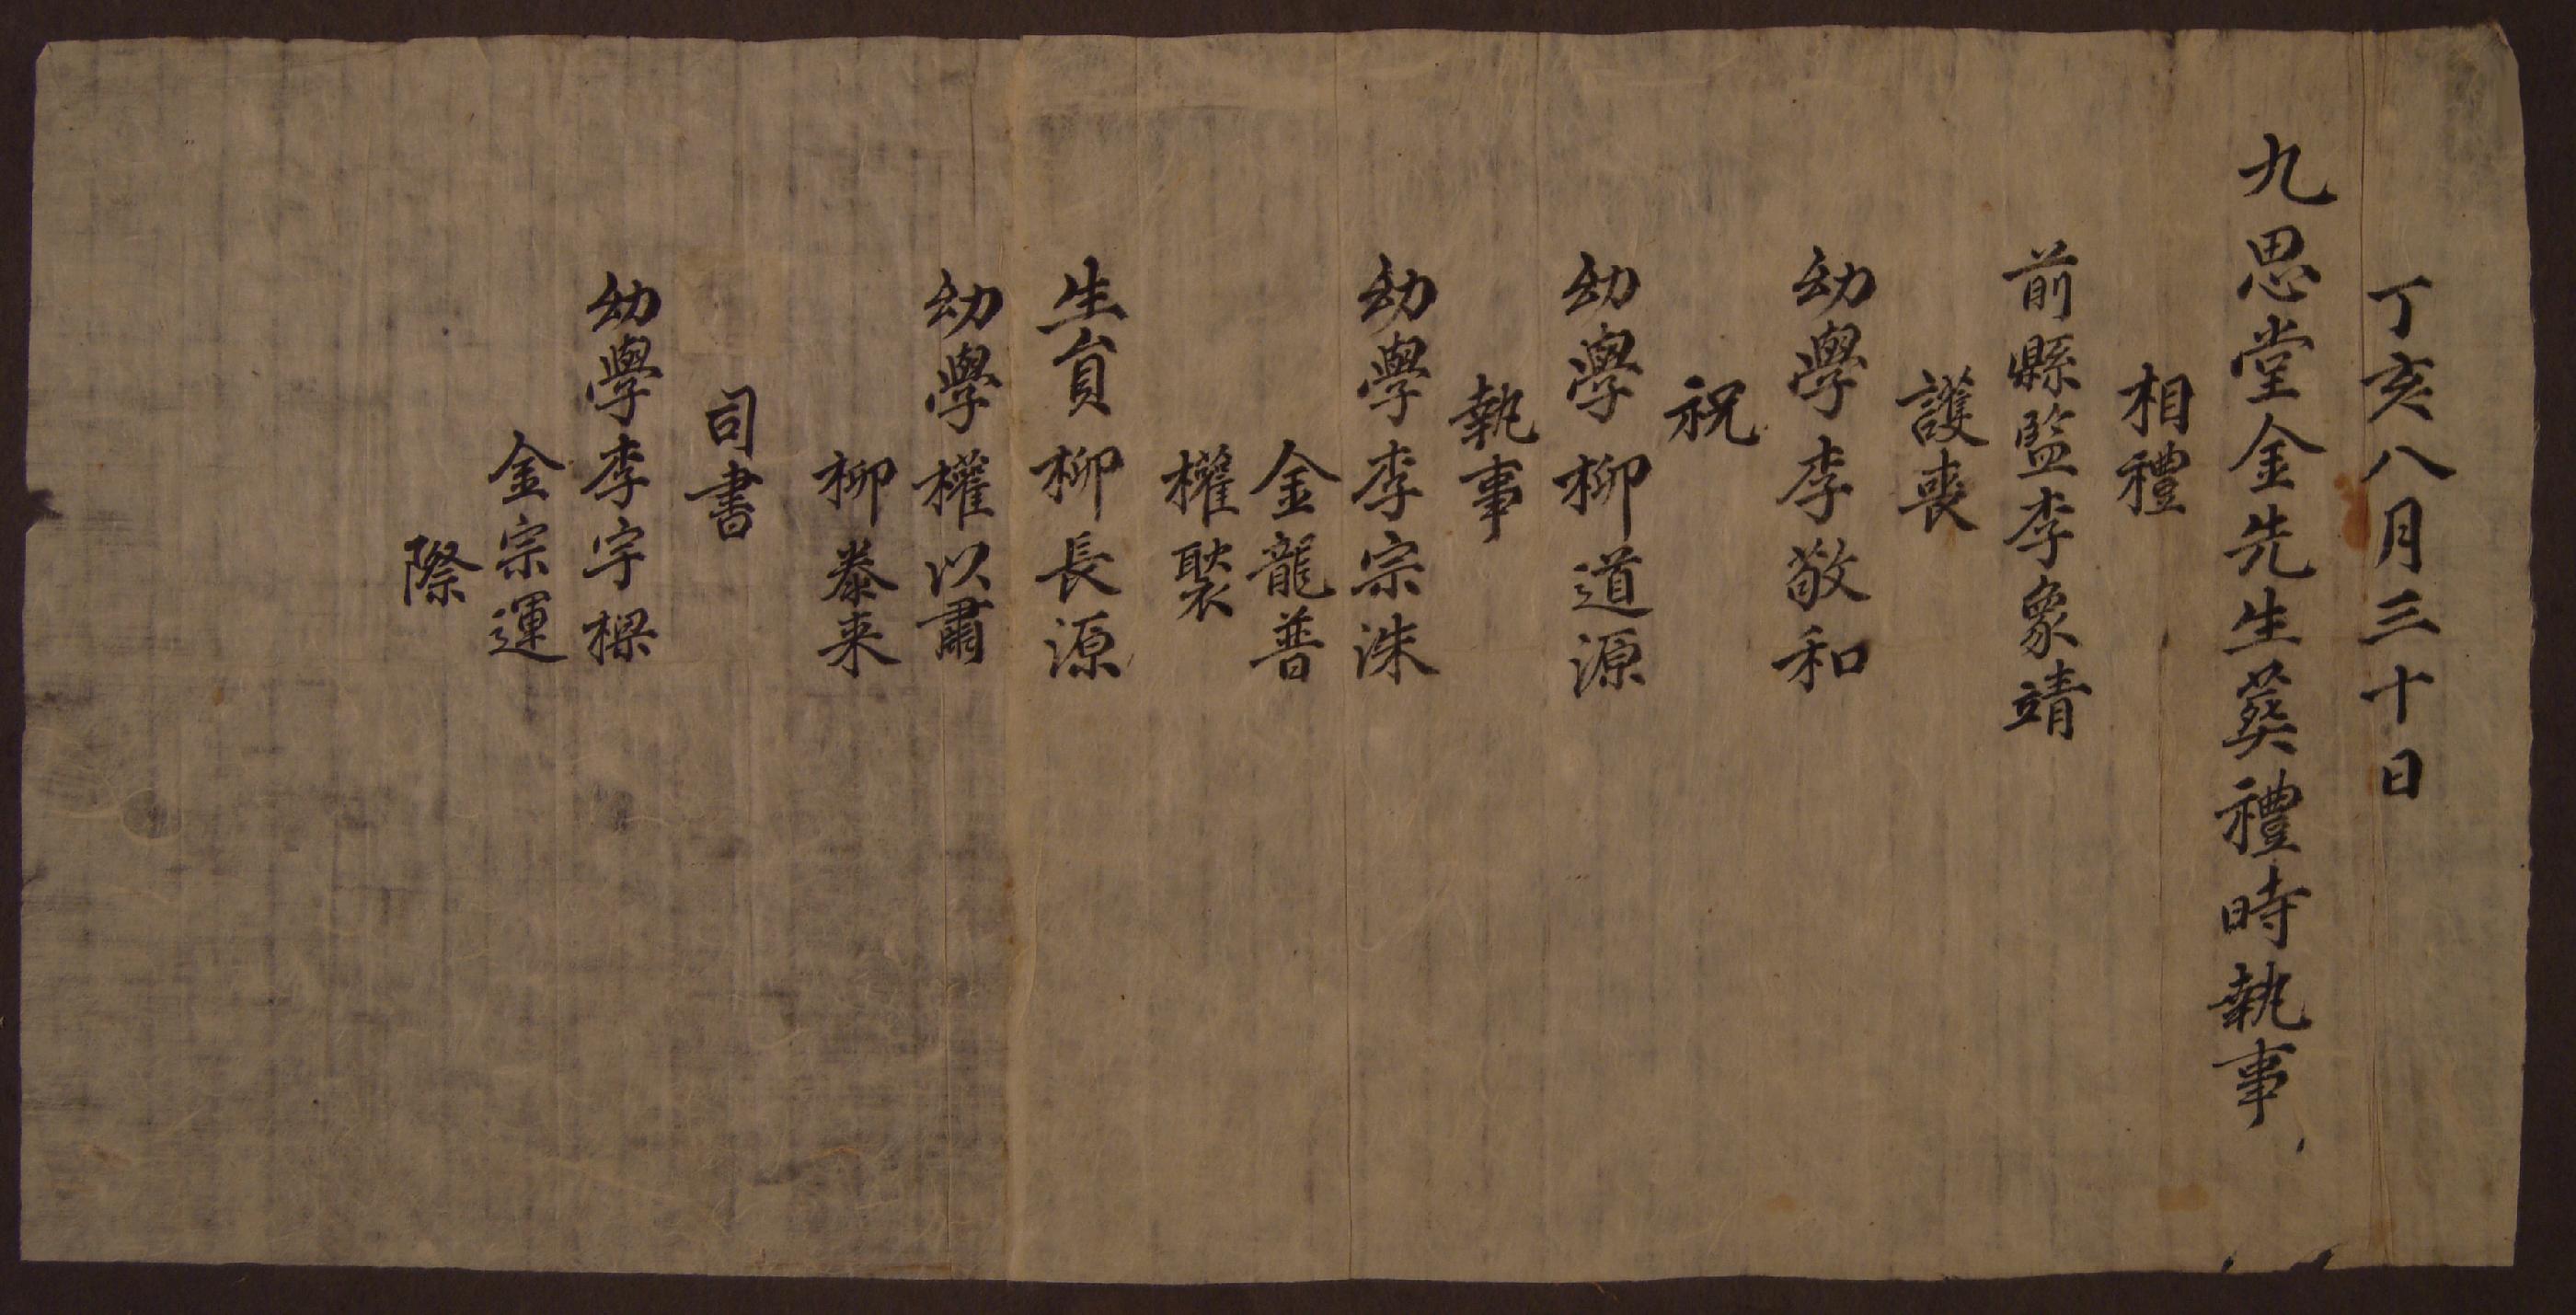 丁亥八月三十日
九思堂金先生葬禮時執事
相禮
前縣監李象靖
護喪
幼學李敬和
祝
幼學柳道源
執事
幼學李宗洙
金龍普
權褧
生員柳長源
幼學權以肅
柳泰来
司書
幼學李宇樑
金宗運
際